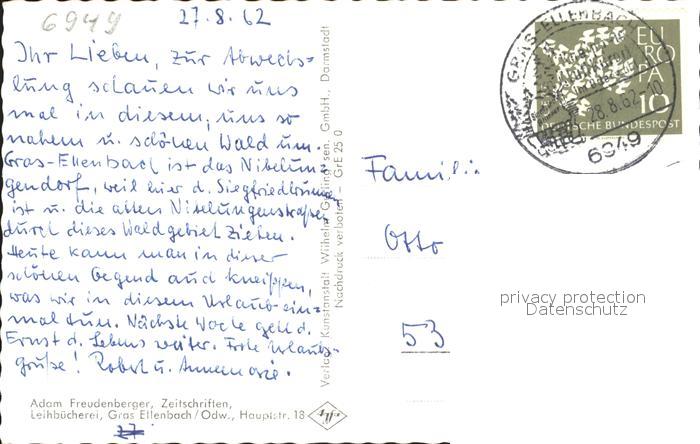 6949
27.8.62
Ihr Lieben, zur Abwechs-
lung schauen wir uns
mal in diesem, uns so
nahem u. schönen Wald um.
Gras-Ellenbach ist das Nibelun=
gendorf, weil hier d. Siegfriedbrunnen
ist u. die alten Nibelungenstraßen
durch dieses Waldgebiet ziehen.
Heute kann man in dieser
schönen Gegend auch kneippen,
was wir in diesem Urlaub ein=
mal tun. Nächste Woche geht d.
Ernst d. Lebens weiter. Frohe Urlaubs-
grüße! Robert u. Annemarie.
Adam Freudenberger, Zeitschriften,
Leihbücherei, Gras Ellenbach/Odw., Hauptstr. 18
27
Verlag: Kunstanstalt Wilhelm Gerling sen. GmbH., Darmstadt
Nachdruck verboten – GrE 25 0
Agfa
GRAS-ELLENBACH
28.8.62-10
6949
EU
RO
PA
10
DEUTSCHE BUNDESPOST
Familie
Otto
53
privacy protection
Datenschutz